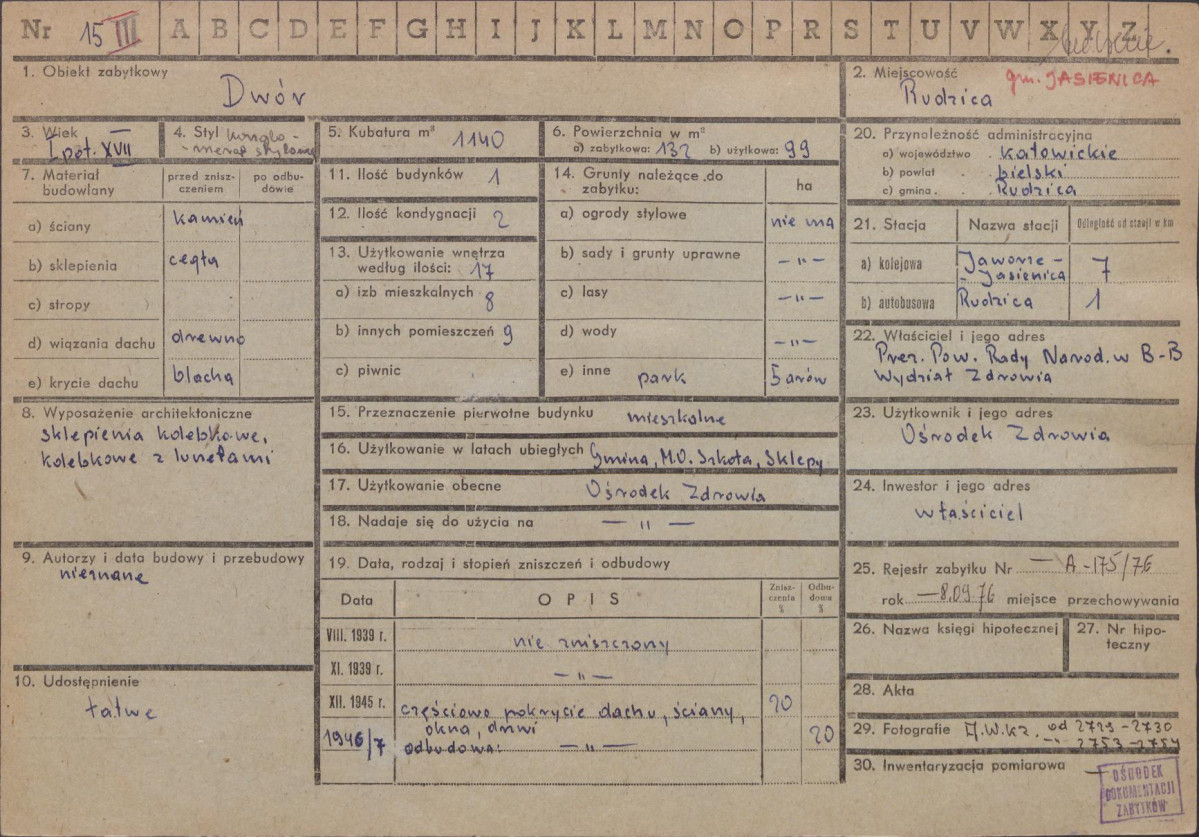 Nr 15 III A B C D E F G H I J K L M N O P R S T U V W X Y Z
1. Obiekt zabytkowy
Dwór
2. Miejscowość
gm. JASIENICA
Rudzica
3. Wiek
I poł. XVII
4. Styl konglo-
-merat stylowy
5. Kubatura m³ 1140
6. Powierzchnia w m²
a) zabytkowa: 132 b) użytkowa: 99
7. Materiał budowlany
przed znisz-
czeniem
po odbu-
dowie
a) ściany kamień
b) sklepienia cegła
c) stropy
d) wiązania dachu drewno
e) krycie dachu blacha
8. Wyposażenie architektoniczne
sklepienia kolebkowe,
kolebkowe z lunetami
9. Autorzy i data budowy i przebudowy
nieznane
10. Udostępnienie
łatwe
11. Ilość budynków 1
12. Ilość kondygnacji 2
13. Użytkowanie wnętrza
według ilości: 17
a) izb mieszkalnych 8
b) innych pomieszczeń 9
c) piwnic
14. Grunty należące do
zabytku:
ha
a) ogrody stylowe nie ma
b) sady i grunty uprawne — " —
c) lasy — " —
d) wody — " —
e) inne park 5 arów
15. Przeznaczenie pierwotne budynku mieszkalne
16. Użytkowanie w latach ubiegłych Gmina, M.O. Szkoła, Sklepy
17. Użytkowanie obecne Ośrodek Zdrowia
18. Nadaje się do użycia na — " —
19. Data, rodzaj i stopień zniszczeń i odbudowy
Data OPIS Znisz-
czenia
%
Odbu-
dowa
%
VIII. 1939 r. nie zniszczony
XI. 1939 r. — " —
XII. 1945 r. częściowo pokrycie dachu, ściany, 20
okna, drzwi
1946/7 odbudowa: — " — 20
20. Przynależność administracyjna
a) województwo katowickie
b) powiat bielski
c) gmina Rudzica
21. Stacja Nazwa stacji Odległość od stacji w km
a) kolejowa Jaworze -
- Jasienica 7
b) autobusowa Rudzica 1
22. Właściciel i jego adres
Prez. Pow. Rady Narod. w B-B
Wydział Zdrowia
23. Użytkownik i jego adres
Ośrodek Zdrowia
24. Inwestor i jego adres
właściciel
25. Rejestr zabytku Nr — A-175/76
rok — 8.09.76 miejsce przechowywania
26. Nazwa księgi hipotecznej
27. Nr hipo-
teczny
28. Akta
29. Fotografie od 2729-2730
— " — 2753-2754
30. Inwentaryzacja pomiarowa —
OŚRODEK
DOKUMENTACJI
ZABYTKÓW